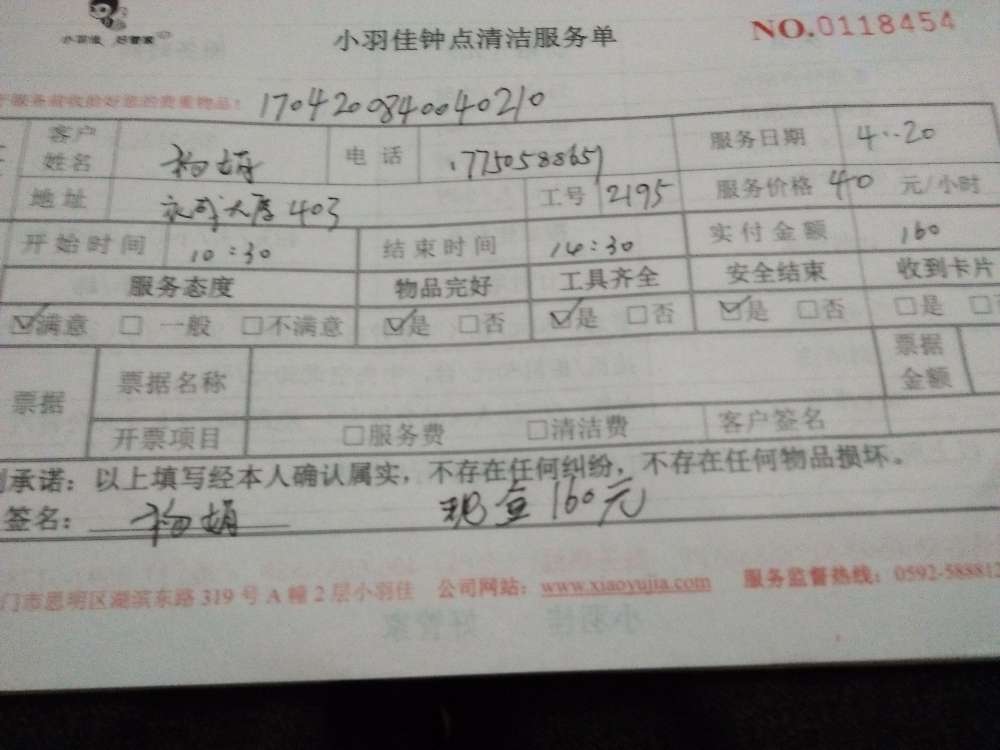 小羽佳 好管家
小羽佳钟点清洁服务单
NO.0118454
服务前收拾好您的贵重物品！ 1704200840040210
客户姓名 杨娟 电话 17750588651 服务日期 4..20
地址 永成大厦403 工号 2195 服务价格 40 元/小时
开始时间 10:30 结束时间 14:30 实付金额 160
服务态度 物品完好 工具齐全 安全结束 收到卡片
☑满意 □一般 □不满意 ☑是 □否 ☑是 □否 ☑是 □否 □是 □
票据 票据名称 票据金额
开票项目 □服务费 □清洁费 客户签名
承诺：以上填写经本人确认属实，不存在任何纠纷，不存在任何物品损坏。
签名： 杨娟 现金160元
门市思明区湖滨东路319号A幢2层小羽佳 公司网站：www.xiaoyujia.com 服务监督热线：0592-588812